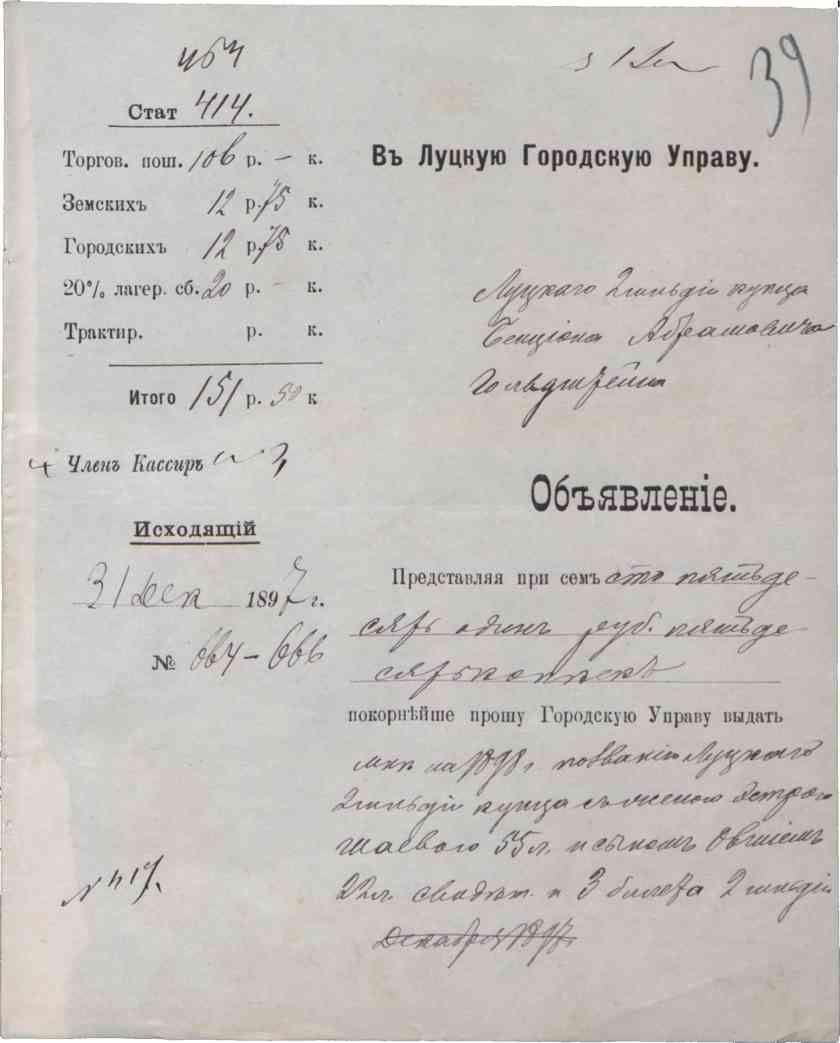 464
39
Стат 414.
Торгов. пош. 106 р. – к.
Земскихъ 12 р. 75 к.
Городскихъ 12 р. 75 к.
20% лагер. сб. 20 р. – к.
Трактир. р. к.
Итого 151 р. 50 к
Членъ Кассиръ
Исходящій
31 Дек 1897 г.
№ 664 – 666
N 417.
Въ Луцкую Городскую Управу.
Луцкаго 2 гильдіи купца
Бенціона Абрамовича
Гольдштейна
Объявленіе.
Представляя при семъ сто пятьде-
сятъ одинъ руб. пятьде
сятъ копѣекъ
покорнѣйше прошу Городскую Управу выдать
мнѣ на 1898 г. по званію Луцкаго
2 гильдіи купца съ женою
55 л. и сыномъ
22 л. свидѣт. и 3 билета 2 гильдіи
Декабря 1897 г.